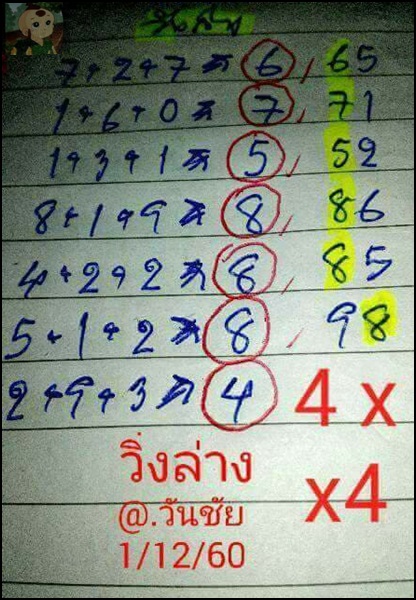 วิ่งล่าง
7+2+7 = 6, 65
1+6+0 = 7, 71
1+3+1 = 5, 52
8+1+9 = 8, 86
4+2+2 = 8, 85
5+1+2 = 8, 98
2+9+3 = 4 4 x
x4
วิ่งล่าง
@.วันชัย
1/12/60